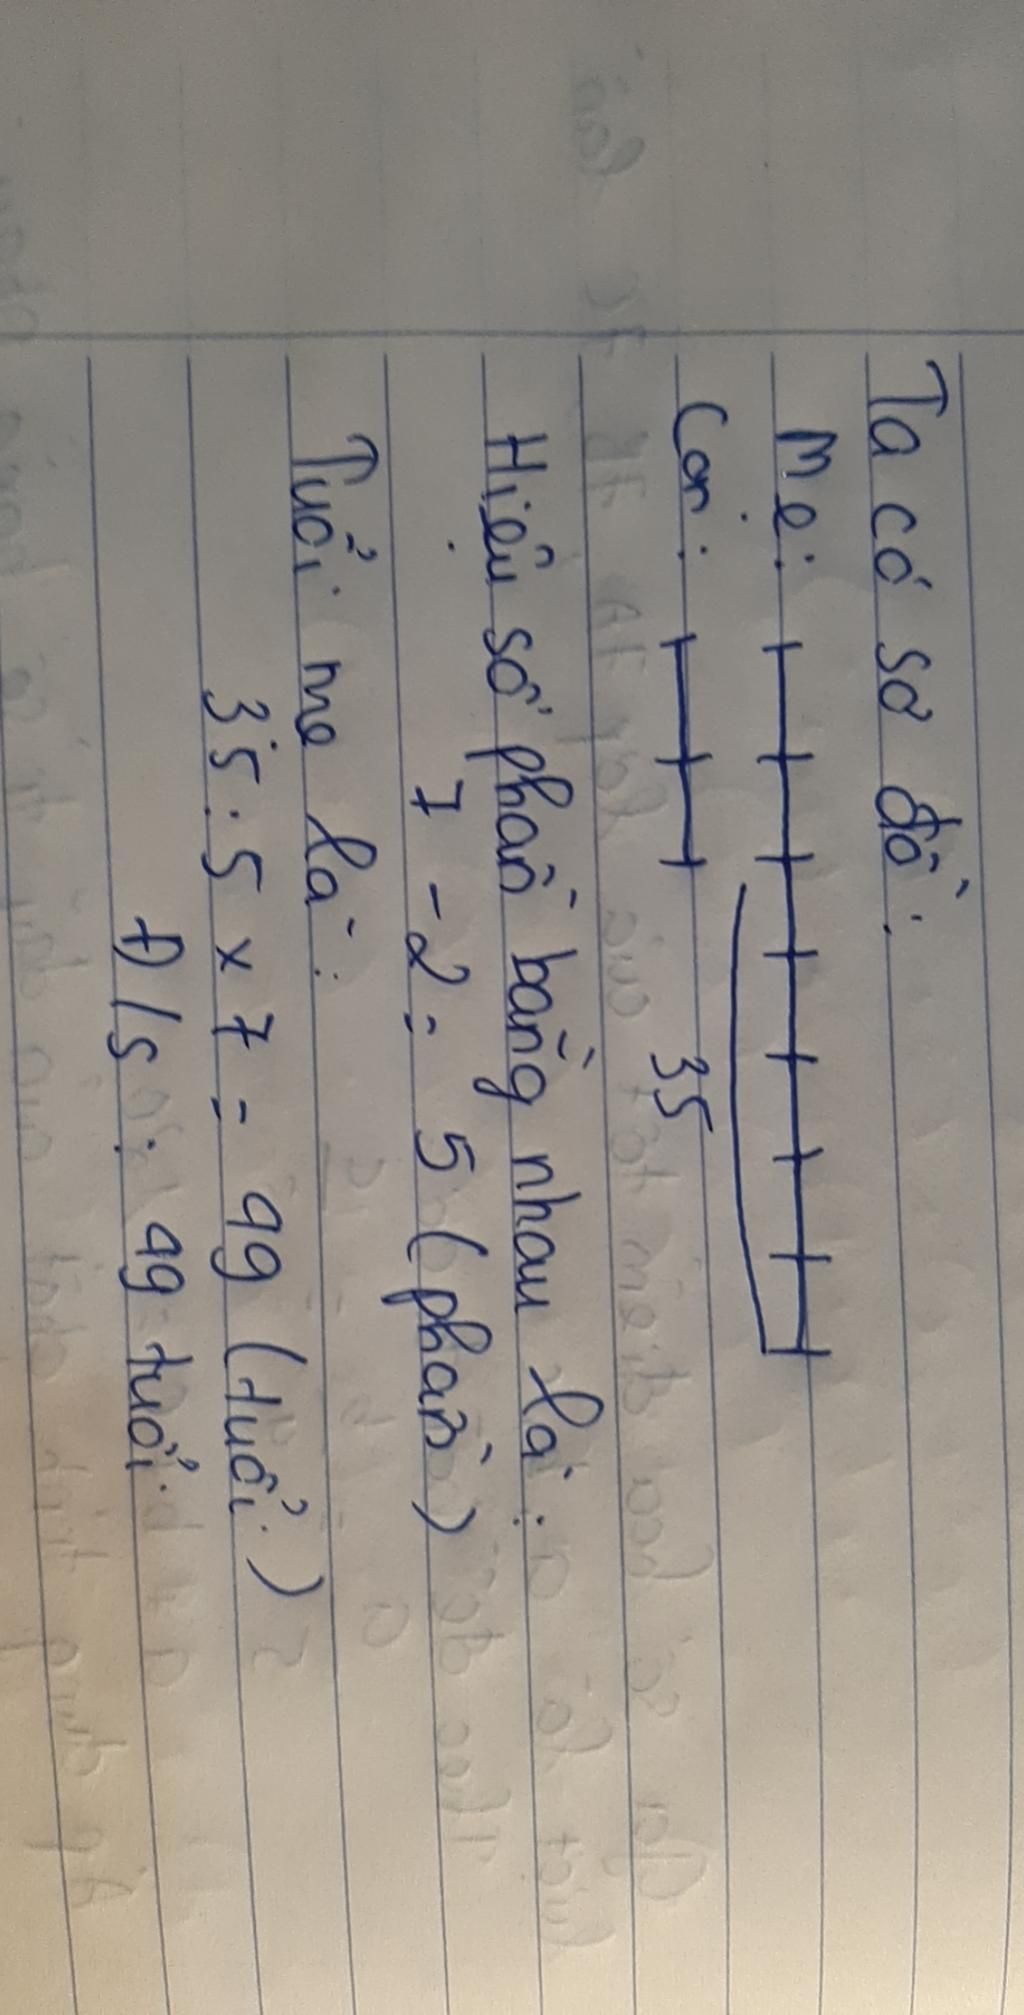 Ta có sơ đồ:
Mẹ:
Con:
35
Hiệu số phần bằng nhau là:
7 - 2 = 5 (phần)
Tuổi mẹ là:
35 : 5 x 7 = 49 (tuổi)
Đ/s: 49 tuổi.